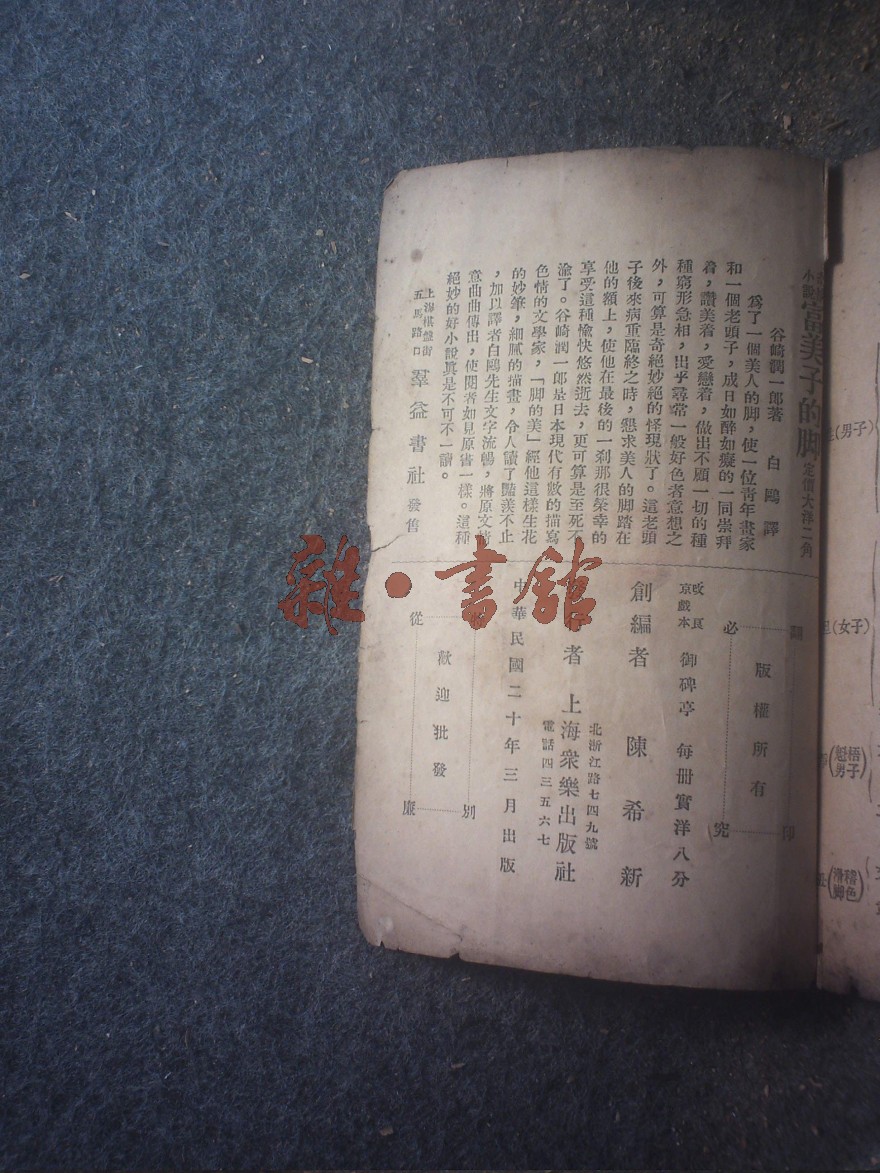 小說 富美子的脚 定價大洋二角
谷崎潤一郎著 白鷗譯
爲了一個美人的脚，使一位青年畫家
和一個老頭子，成日如醉如癡的一同崇拜
着，讚美着，愛戀着，做出不顧一切的種
種窮形急相，出乎尋常一般好色者意想之
外，可算是奇絕妙絕的怪現狀了。這老頭
子後來病重臨終之時，懇求美人的脚踏在
他的額上，使他在最後的一刹那很榮幸的
享受這種愉快悠然逝去，更可算是至死不
渝了。谷崎潤一郎是日本現代有數的描寫
色情的文學家，「脚的美」經他這樣生花
的妙筆，細膩的描畫，令人讀了豔羡不止
，加以譯者白鷗先生文字流暢，將原文
意曲曲傳出，使閱者如見原崋一樣。這種
絕妙的好小說眞是不可不一讀。
上海棋盤街
五馬路口 羣益書社 發售
版權所有
必究
改良
京戲本 御碑亭 每冊實洋八分
創編者 陳希新
北浙江路七四九號
者 上海衆樂出版社
電話四三五六七
中華民國二十年三月出版
歡迎批發
從
別
廉
(男子)
(女子)
(魁梧男子)
(滑稽脚色)
雜·書館